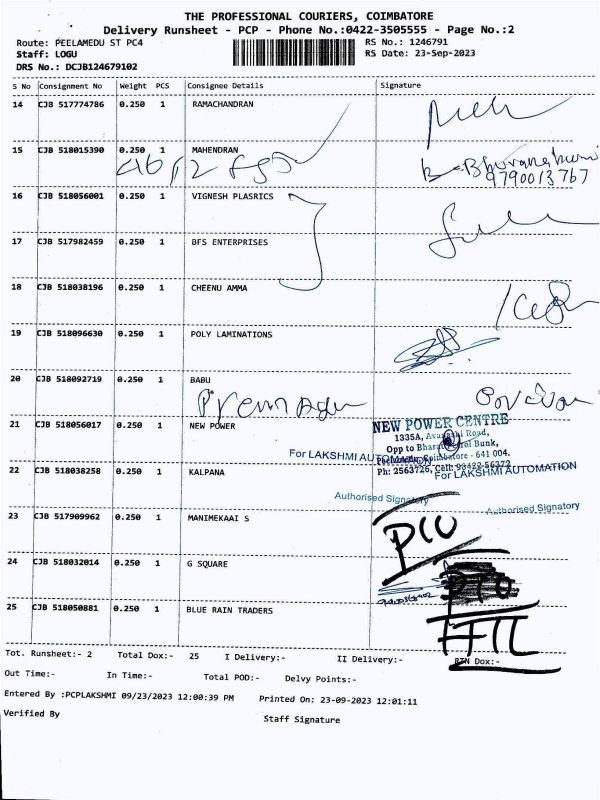 THE PROFESSIONAL COURIERS, COIMBATORE
Delivery Runsheet - PCP - Phone No.:0422-3505555 - Page No.:2
Route: PEELAMEDU ST PC4
RS No.: 1246791
Staff: LOGU
RS Date: 23-Sep-2023
DRS No.: DCJB124679102
S No Consignment No Weight PCS Consignee Details Signature
14 CJB 517774786 0.250 1 RAMACHANDRAN
15 CJB 518015390 0.250 1 MAHENDRAN
9790013767
16 CJB 518056001 0.250 1 VIGNESH PLASRICS
17 CJB 517982459 0.250 1 BFS ENTERPRISES
18 CJB 518038196 0.250 1 CHEENU AMMA
19 CJB 518096630 0.250 1 POLY LAMINATIONS
20 CJB 518092719 0.250 1 BABU
21 CJB 518056017 0.250 1 NEW POWER
NEW POWER CENTRE
1335A, Avanashi Road,
Opp to Bharat Petrol Bunk,
Coimbatore - 641 004.
Ph: 2563726, Cell: 93422 56372
For LAKSHMI AUTOMATION
For LAKSHMI AUTOMATION
22 CJB 518038258 0.250 1 KALPANA
Authorised Signatory
Authorised Signatory
23 CJB 517909962 0.250 1 MANIMEKAAI S
24 CJB 518032014 0.250 1 G SQUARE
25 CJB 518050881 0.250 1 BLUE RAIN TRADERS
Tot. Runsheet:- 2 Total Dox:- 25 I Delivery:- II Delivery:- RTN Dox:-
Out Time:- In Time:- Total POD:- Delvy Points:-
Entered By :PCPLAKSHMI 09/23/2023 12:00:39 PM Printed On: 23-09-2023 12:01:11
Verified By Staff Signature